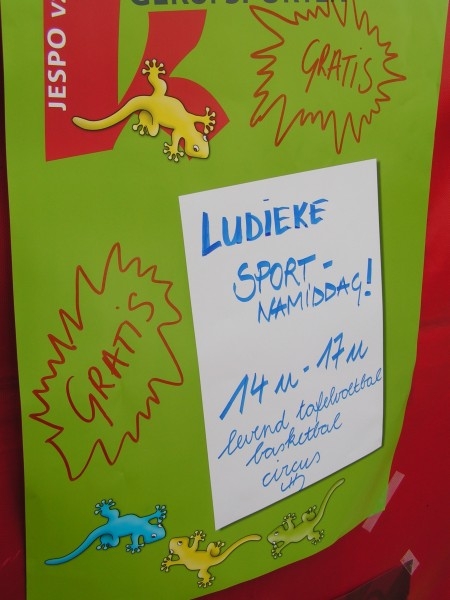 JESPO
GRATIS
LUDIEKE
SPORT-
NAMIDDAG!
14 u - 17 u
levend tafelvoetbal
basketbal
circus
GRATIS